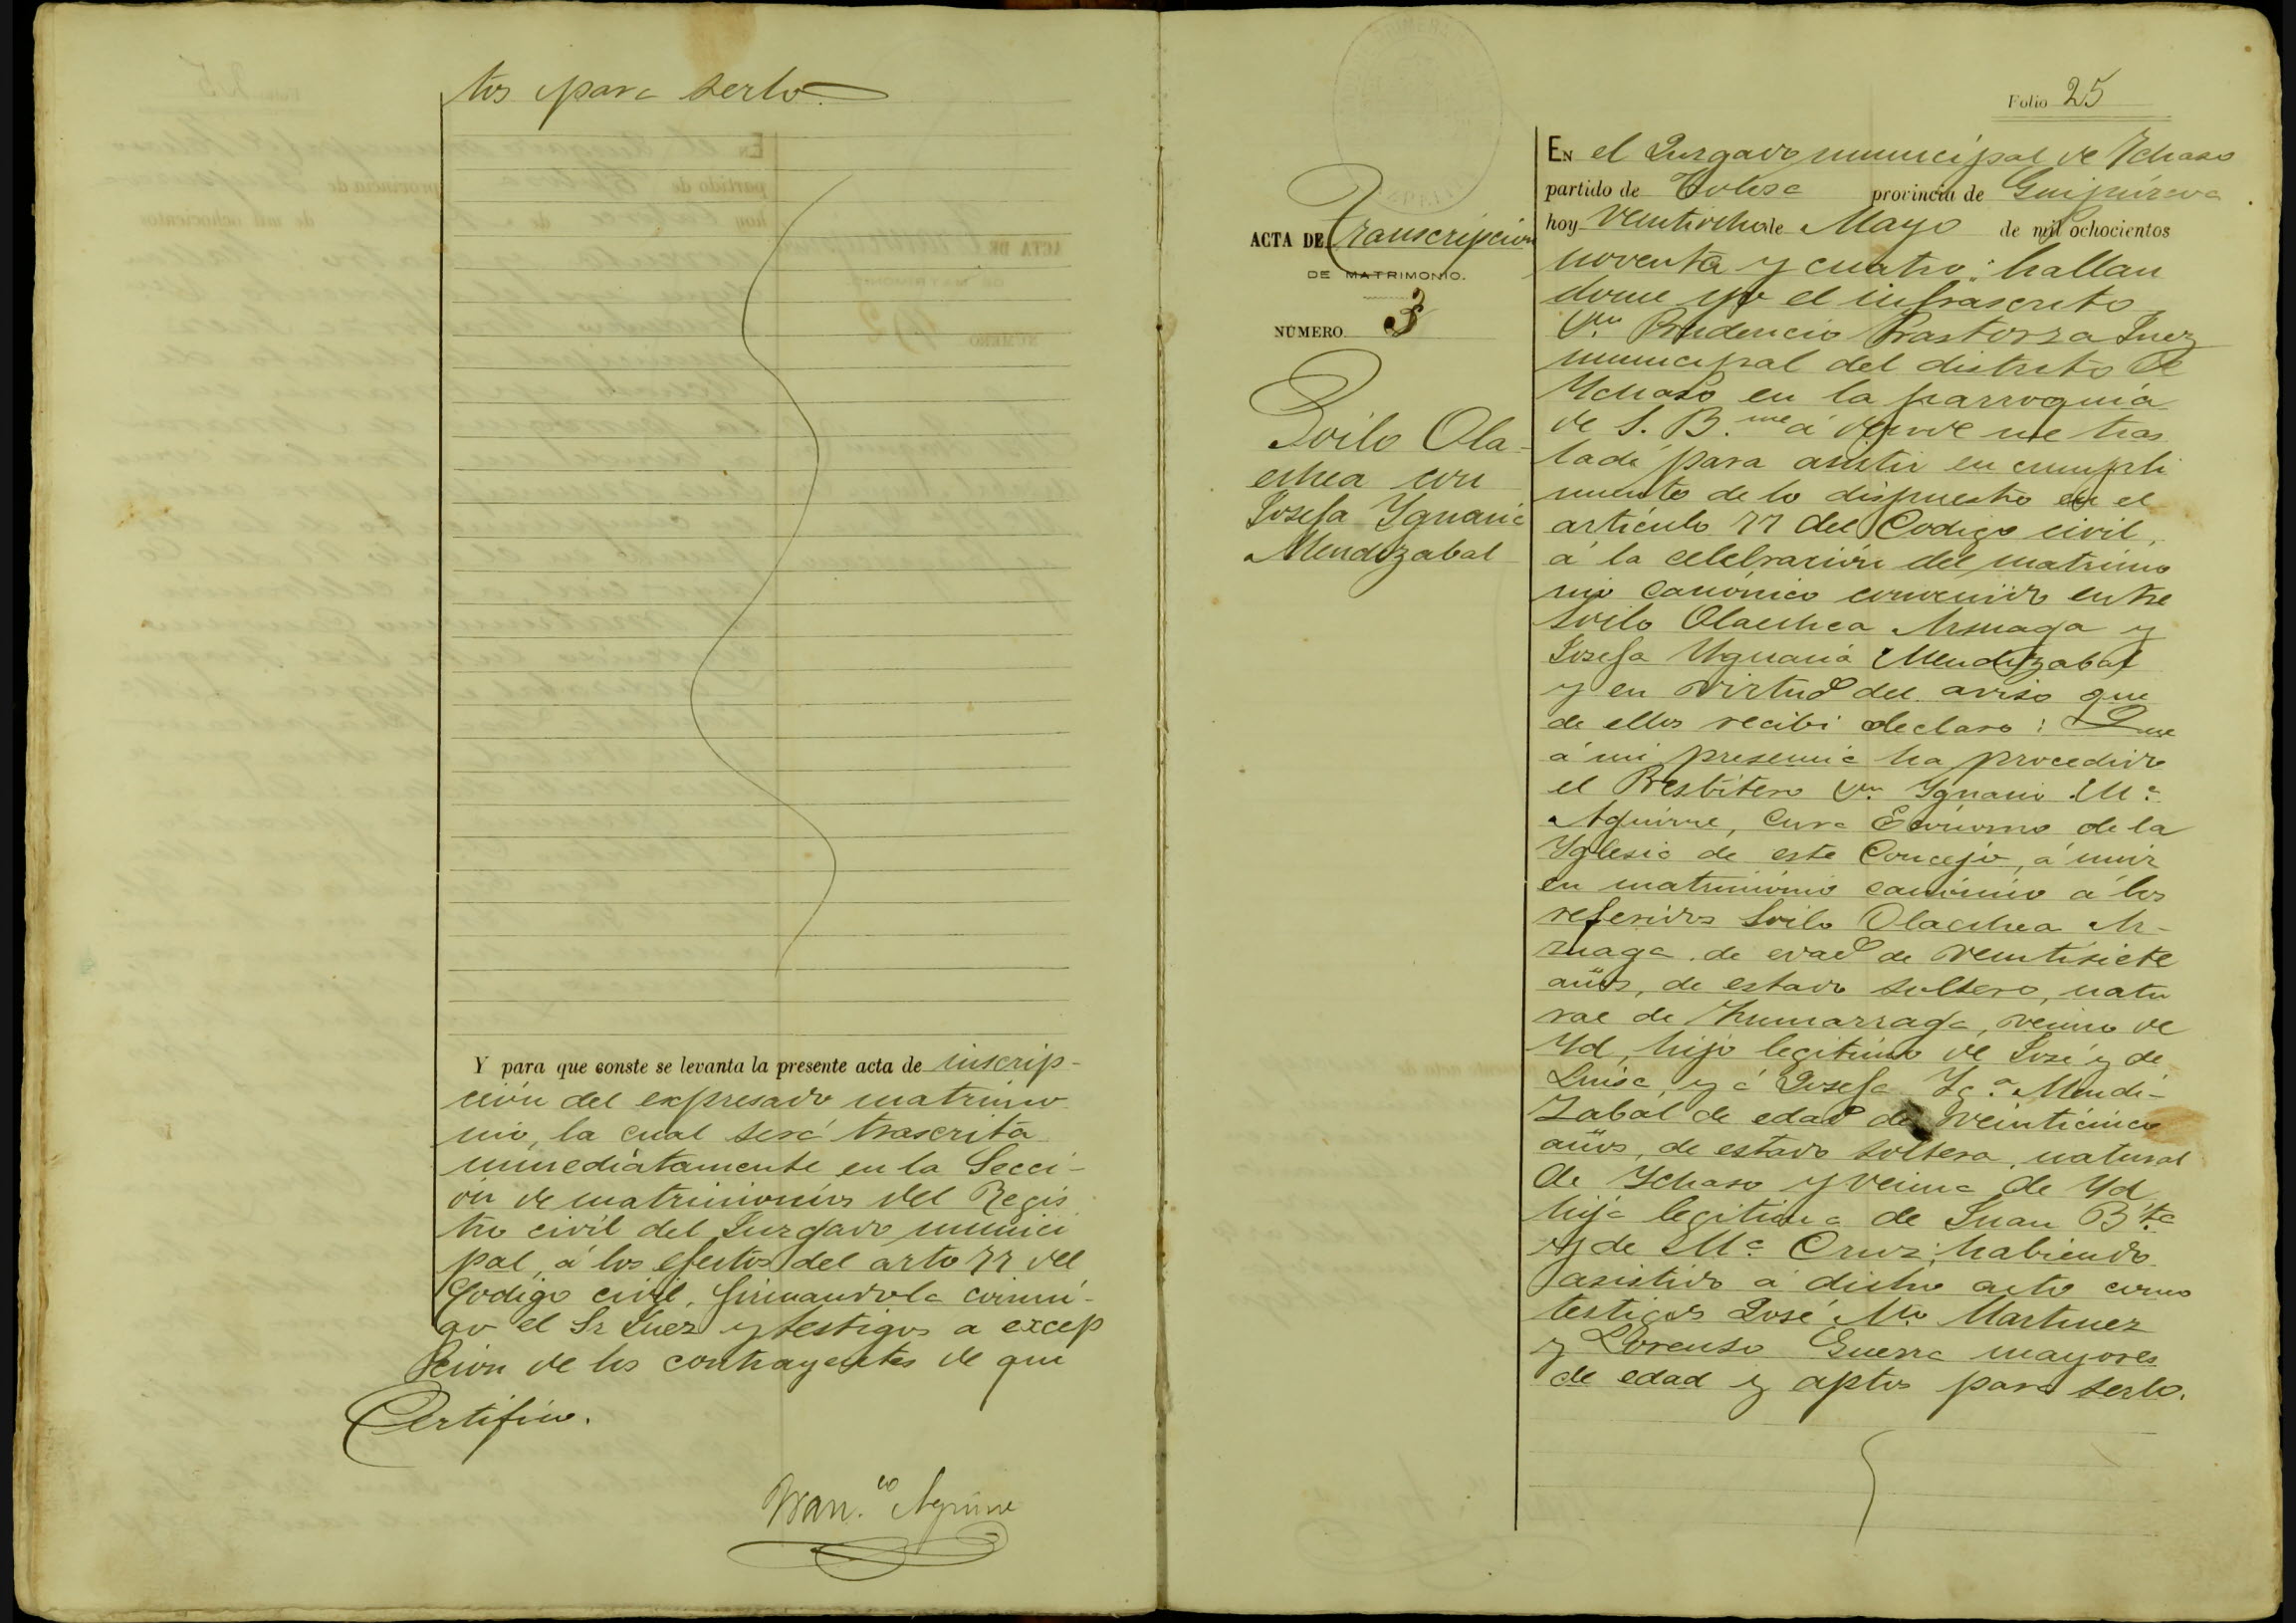 tos para serlo.
Y para que conste se levanta la presente acta de inscrip-
ción del expresado matrimo
nio, la cual será trascrita
inmediatamente en la Secci-
ón de matrimonios del Regis
tro civil del Juzgado munici
pal, á los efectos del arto 77 del
Codigo civil, firmandola conmi-
go el Sr Juez y testigos a excep
cion de los contrayentes de que
Certifico.
Fran.co Aguirre
Folio 25
ACTA DE Transcripcion
DE MATRIMONIO.
NÚMERO 3
Soilo Ola-
echea con
Josefa Ygnacia
Mendizabal
EN el Juzgado municipal de Ychaso
partido de Tolosa provincia de Guipúzcoa
hoy veintiocho de Mayo de mil ochocientos
noventa y cuatro: hallan
dome yo el infrascrito
Dn Prudencio Juez
municipal del distrito de
Ychaso en la parroquia
de S. B.me á donde me tras
ladé para asistir en cumpli
miento de lo dispuesto en el
artículo 77 del Codigo civil,
á la celebración del matrimo
nio canónico convenido entre
Soilo Olaechea Arzuaga y
Josefa Ygnacia Mendizabal
y en virtud del aviso que
de ellos recibi declaro: Que
á mi presencia ha procedido
el Presbitero Dn Ygnacio M.a
Aguirre, Cura Ecónomo de la
Yglesia de este Concejo, á unir
en matrimonio canónico á los
referidos Soilo Olaechea Ar-
zuaga de edad de veintisiete
años, de estado soltero, natu
ral de Zumarraga, vecino de
Yd, hijo legitimo de José y de
Luisa, y á Josefa Yg.a Mendi-
zabal de edad de veinticinco
años, de estado soltera, natural
de Ychaso y vecina de Yd
hija legitima de Juan B.ta
y de M.a Cruz; habiendo
asistido á dicho acto como
testigos José M.a Martinez
y Lorenso Guerra mayores
de edad y aptos para serlo.